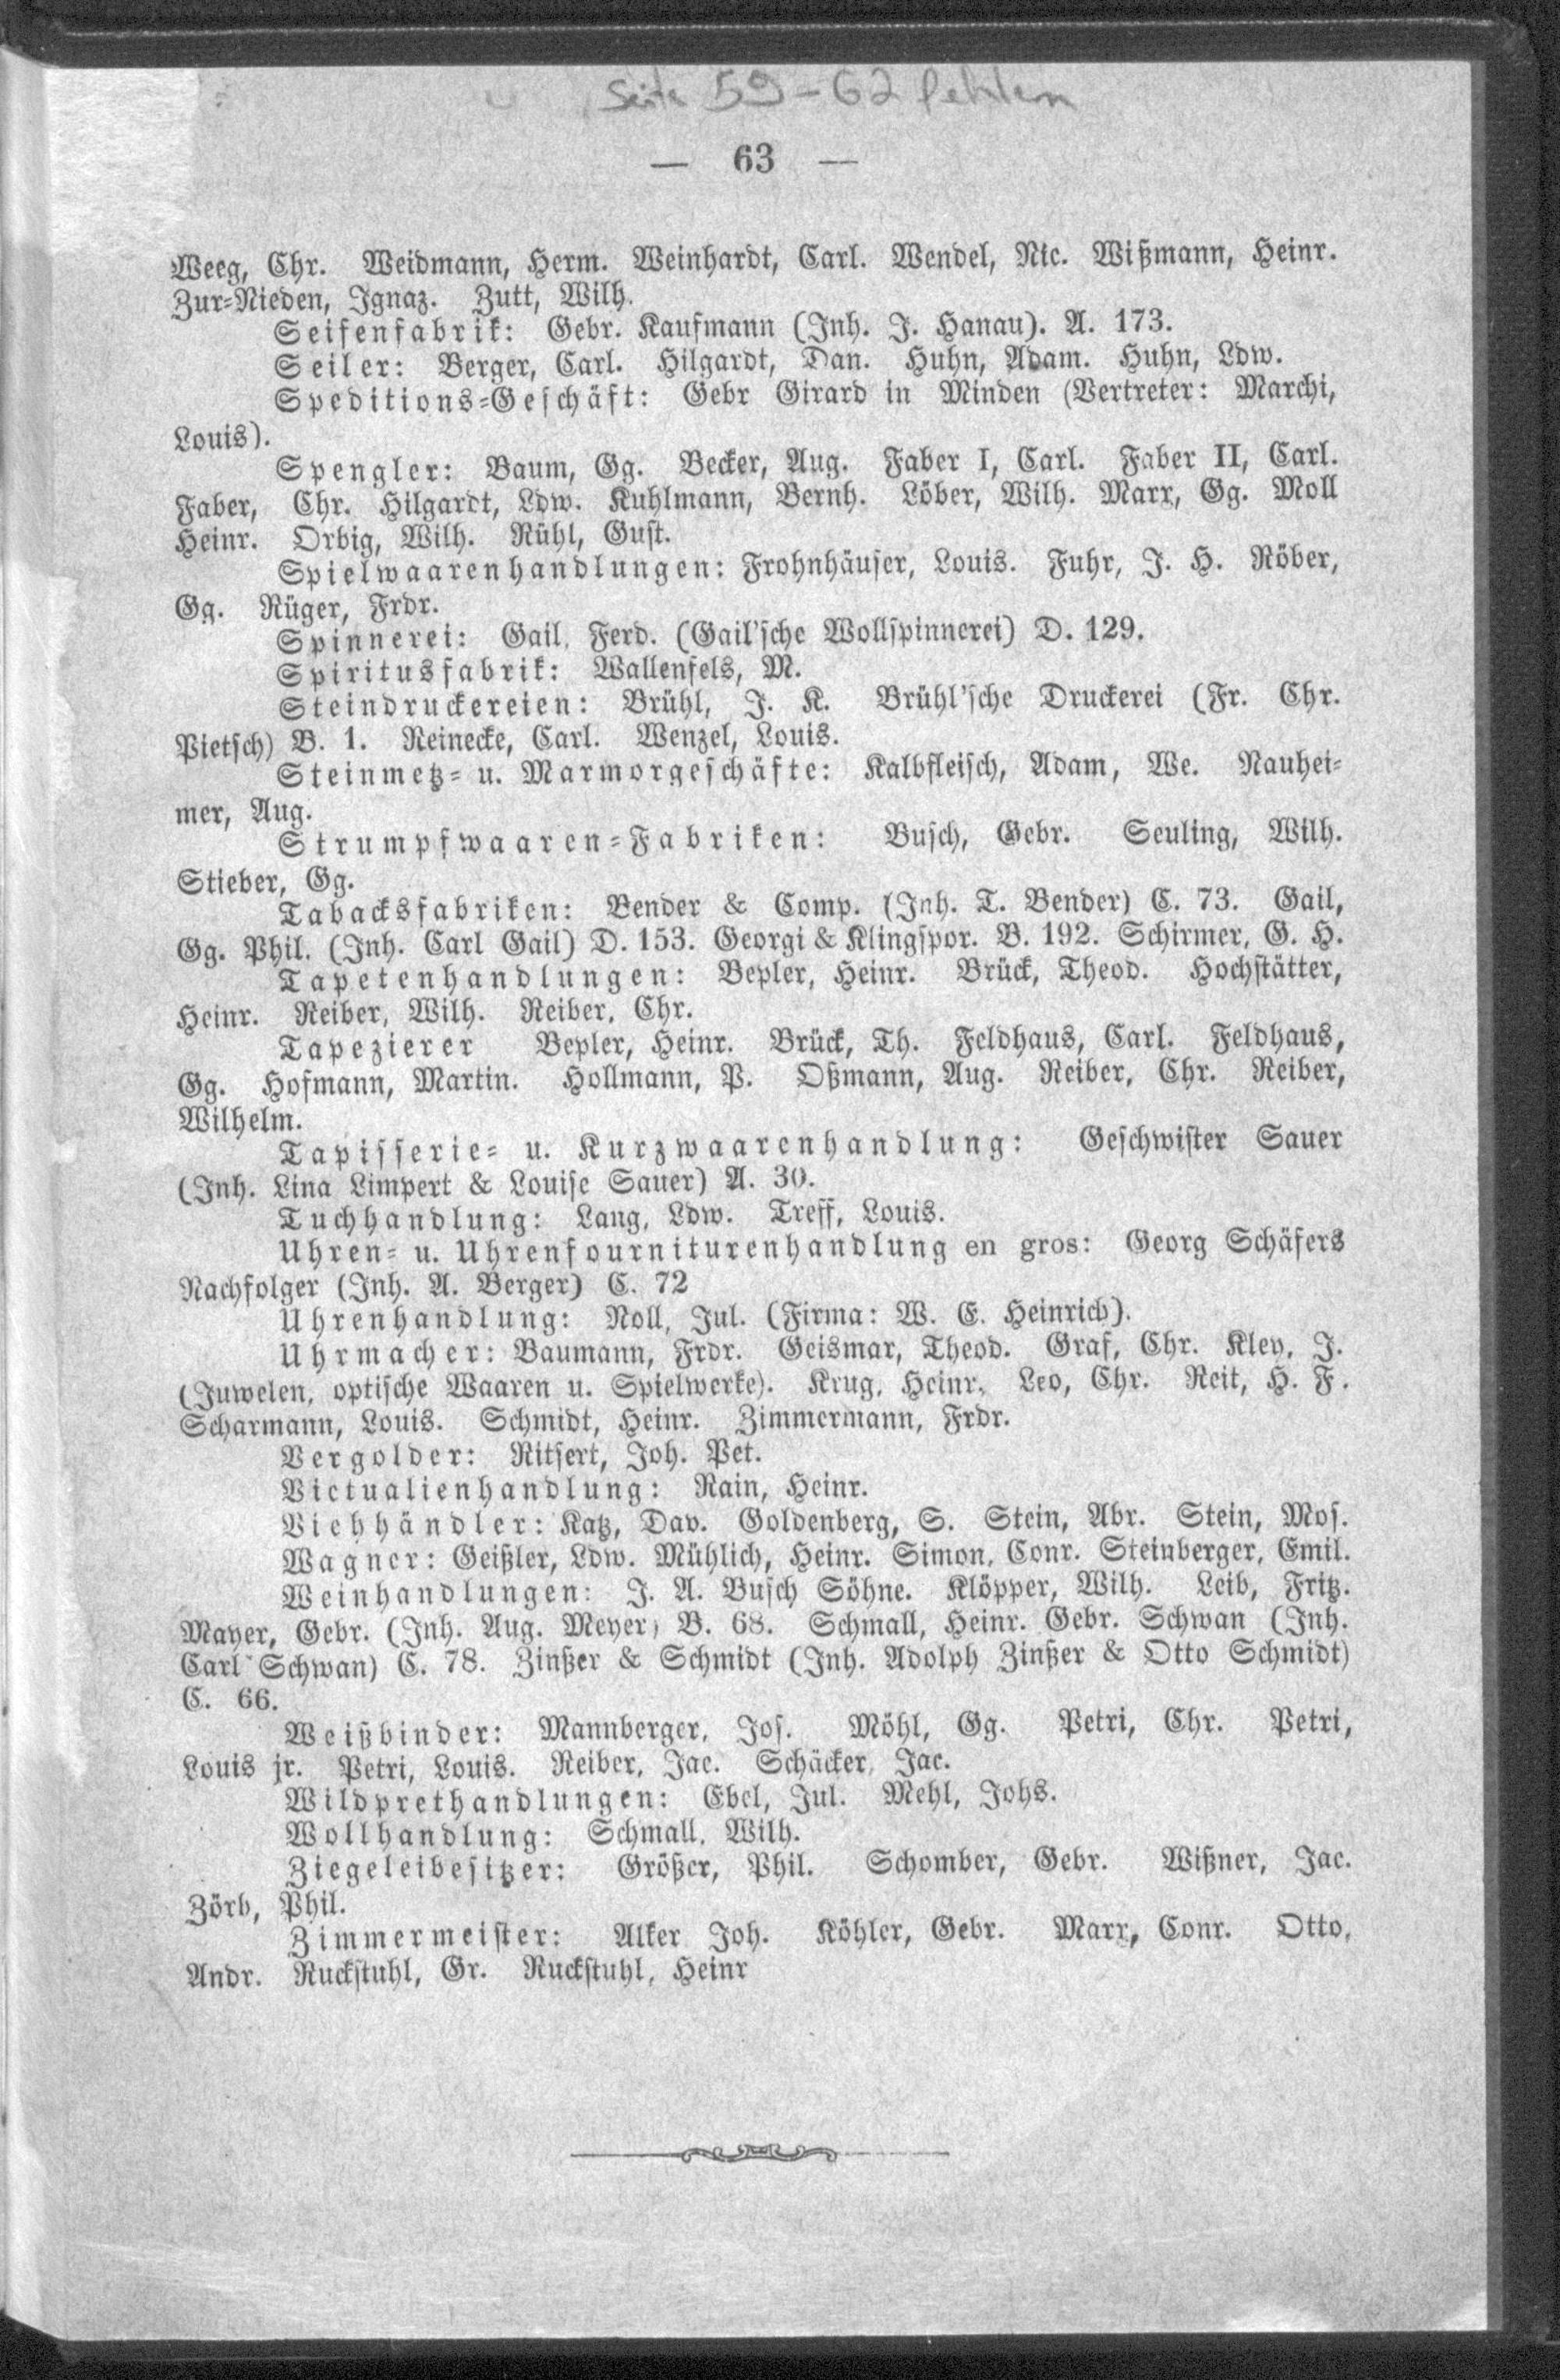 Seite 59-62 fehlen
— 63 —
Weeg, Chr. Weidmann, Herm. Weinhardt, Carl. Wendel, Nic. Wißmann, Heinr.
Zur-Nieden, Ignaz. Zutt, Wilh.
Seifenfabrik: Gebr. Kaufmann (Inh. J. Hanau). A. 173.
Seiler: Berger, Carl. Hilgardt, Dan. Huhn, Adam. Huhn, Ldw.
Speditions-Geschäft: Gebr Girard in Minden (Vertreter: Marchi,
Louis).
Spengler: Baum, Gg. Becker, Aug. Faber I, Carl. Faber II, Carl.
Faber, Chr. Hilgardt, Ldw. Kuhlmann, Bernh. Löber, Wilh. Marx, Gg. Moll
Heinr. Orbig, Wilh. Rühl, Gust.
Spielwaarenhandlungen: Frohnhäuser, Louis. Fuhr, J. H. Röber,
Gg. Rüger, Frdr.
Spinnerei: Gail, Ferd. (Gail'sche Wollspinnerei) D. 129.
Spiritusfabrik: Wallenfels, M.
Steindruckereien: Brühl, J. K. Brühl'sche Druckerei (Fr. Chr.
Pietsch) B. 1. Reinecke, Carl. Wenzel, Louis.
Steinmetz- u. Marmorgeschäfte: Kalbfleisch, Adam, We. Nauhei-
mer, Aug.
Strumpfwaaren-Fabriken: Busch, Gebr. Seuling, Wilh.
Stieber, Gg.
Tabacksfabriken: Bender & Comp. (Inh. T. Bender) C. 73. Gail,
Gg. Phil. (Inh. Carl Gail) D. 153. Georgi & Klingspor. B. 192. Schirmer, G. H.
Tapetenhandlungen: Bepler, Heinr. Brück, Theod. Hochstätter,
Heinr. Reiber, Wilh. Reiber, Chr.
Tapezierer Bepler, Heinr. Brück, Th. Feldhaus, Carl. Feldhaus,
Gg. Hofmann, Martin. Hollmann, P. Oßmann, Aug. Reiber, Chr. Reiber,
Wilhelm.
Tapisserie- u. Kurzwaarenhandlung: Geschwister Sauer
(Inh. Lina Limpert & Louise Sauer) A. 30.
Tuchhandlung: Lang, Ldw. Treff, Louis.
Uhren- u. Uhrenfourniturenhandlung en gros: Georg Schäfers
Nachfolger (Inh. A. Berger) C. 72
Uhrenhandlung: Noll, Jul. (Firma: W. E. Heinrich).
Uhrmacher: Baumann, Frdr. Geismar, Theod. Graf, Chr. Kley, J.
(Juwelen, optische Waaren u. Spielwerke). Krug, Heinr. Leo, Chr. Reit, H. F.
Scharmann, Louis. Schmidt, Heinr. Zimmermann, Frdr.
Vergolder: Ritsert, Joh. Pet.
Victualienhandlung: Rain, Heinr.
Viehhändler: Katz, Dav. Goldenberg, S. Stein, Abr. Stein, Mos.
Wagner: Geißler, Ldw. Mühlich, Heinr. Simon, Conr. Steinberger, Emil.
Weinhandlungen: J. A. Busch Söhne. Klöpper, Wilh. Leib, Fritz.
Mayer, Gebr. (Inh. Aug. Meyer) B. 68. Schmall, Heinr. Gebr. Schwan (Inh.
Carl Schwan) C. 78. Zinßer & Schmidt (Inh. Adolph Zinßer & Otto Schmidt)
C. 66.
Weißbinder: Mannberger, Jos. Möhl, Gg. Petri, Chr. Petri,
Louis jr. Petri, Louis. Reiber, Jac. Schäcker, Jac.
Wildprethandlungen: Ebel, Jul. Mehl, Johs.
Wollhandlung: Schmall, Wilh.
Ziegeleibesitzer: Größer, Phil. Schomber, Gebr. Wißner, Jac.
Zörb, Phil.
Zimmermeister: Alker Joh. Köhler, Gebr. Marx, Conr. Otto,
Andr. Ruckstuhl, Gr. Ruckstuhl, Heinr